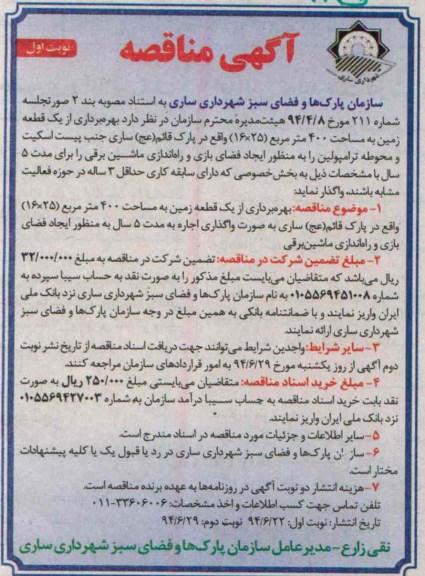 آگهی مناقصه
نوبت اول
شهرداری ساری
سازمان پارک‌ها و فضای سبز شهرداری ساری به استناد مصوبه بند ۲ صورتجلسه
شماره ۲۱۱ مورخ ۹۴/۴/۸ هیئت‌مدیره محترم سازمان در نظر دارد بهره‌برداری از یک قطعه
زمین به مساحت ۴۰۰ متر مربع (۲۵×۱۶) واقع در پارک قائم(عج) ساری جنب پیست اسکیت
و محوطه ترامپولین را به منظور ایجاد فضای بازی و راه‌اندازی ماشین برقی را برای مدت ۵
سال با مشخصات ذیل به بخش‌خصوصی که دارای سابقه کاری حداقل ۳ ساله در حوزه فعالیت
مشابه باشند، واگذار نماید:
۱- موضوع مناقصه: بهره‌برداری از یک قطعه زمین به مساحت ۴۰۰ متر مربع (۲۵×۱۶)
واقع در پارک قائم(عج) ساری به صورت واگذاری اجاره به مدت ۵ سال به منظور ایجاد فضای
بازی و راه‌اندازی ماشین‌برقی
۲- مبلغ تضمین شرکت در مناقصه: تضمین شرکت در مناقصه به مبلغ ۳۲/۰۰۰/۰۰۰
ریال می‌باشد که متقاضیان می‌بایست مبلغ مذکور را به صورت نقد به حساب سیبا سپرده به
شماره ۰۱۰۵۵۶۹۴۵۱۰۰۸ به نام سازمان پارک‌ها و فضای سبز شهرداری ساری نزد بانک ملی
ایران واریز نمایند و یا ضمانتنامه بانکی به همین مبلغ در وجه سازمان پارک‌ها و فضای سبز
شهرداری ساری ارائه نمایند.
۳- سایر شرایط: واجدین شرایط می‌توانند جهت دریافت اسناد مناقصه از تاریخ نشر نوبت
دوم آگهی از روز یکشنبه مورخ ۹۴/۶/۲۹ به امور قراردادهای سازمان مراجعه کنند.
۴- مبلغ خرید اسناد مناقصه: متقاضیان می‌بایستی مبلغ ۲۵۰/۰۰۰ ریال به صورت
نقد بابت خرید اسناد مناقصه به حساب سیبا درآمد سازمان به شماره ۰۱۰۵۵۶۹۴۲۷۰۰۳
نزد بانک ملی ایران واریز نمایند.
۵- سایر اطلاعات و جزئیات مورد مناقصه در اسناد مندرج است.
۶- سازمان پارک‌ها و فضای سبز شهرداری ساری در رد یا قبول یک یا کلیه پیشنهادات
مختار است.
۷- هزینه انتشار دو نوبت آگهی در روزنامه‌ها به عهده برنده مناقصه است.
تلفن تماس جهت کسب اطلاعات و اخذ مشخصات: ۳۳۶۰۶۰۰۶-۰۱۱
تاریخ انتشار: نوبت اول: ۹۴/۶/۲۲ نوبت دوم: ۹۴/۶/۲۹
نقی زارع - مدیرعامل سازمان پارک‌ها و فضای سبز شهرداری ساری